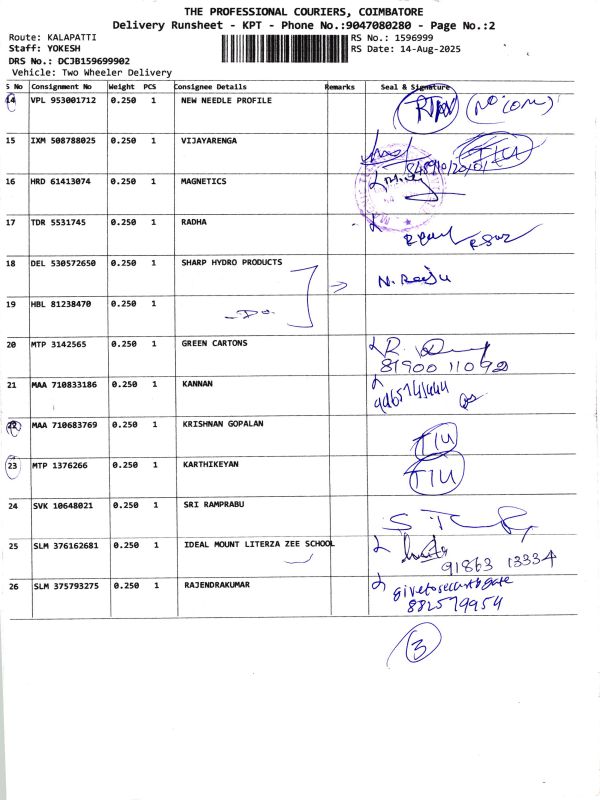 THE PROFESSIONAL COURIERS, COIMBATORE
Delivery Runsheet - KPT - Phone No.:9047080280 - Page No.:2
Route: KALAPATTI RS No.: 1596999
Staff: YOKESH RS Date: 14-Aug-2025
DRS No.: DCJB159699902
Vehicle: Two Wheeler Delivery
S No Consignment No Weight PCS Consignee Details Remarks Seal & Signature
14 VPL 953001712 0.250 1 NEW NEEDLE PROFILE
15 IXM 508788025 0.250 1 VIJAYARENGA T/U
16 HRD 61413074 0.250 1 MAGNETICS
17 TDR 5531745 0.250 1 RADHA
18 DEL 530572650 0.250 1 SHARP HYDRO PRODUCTS N. Raju
19 HBL 81238470 0.250 1 -Do.
20 MTP 3142565 0.250 1 GREEN CARTONS R.
81900 11092
21 MAA 710833186 0.250 1 KANNAN
22 MAA 710683769 0.250 1 KRISHNAN GOPALAN T/U
23 MTP 1376266 0.250 1 KARTHIKEYAN T/U
24 SVK 10648021 0.250 1 SRI RAMPRABU
25 SLM 376162681 0.250 1 IDEAL MOUNT LITERZA ZEE SCHOOL
91863 13334
26 SLM 375793275 0.250 1 RAJENDRAKUMAR
882579954
3